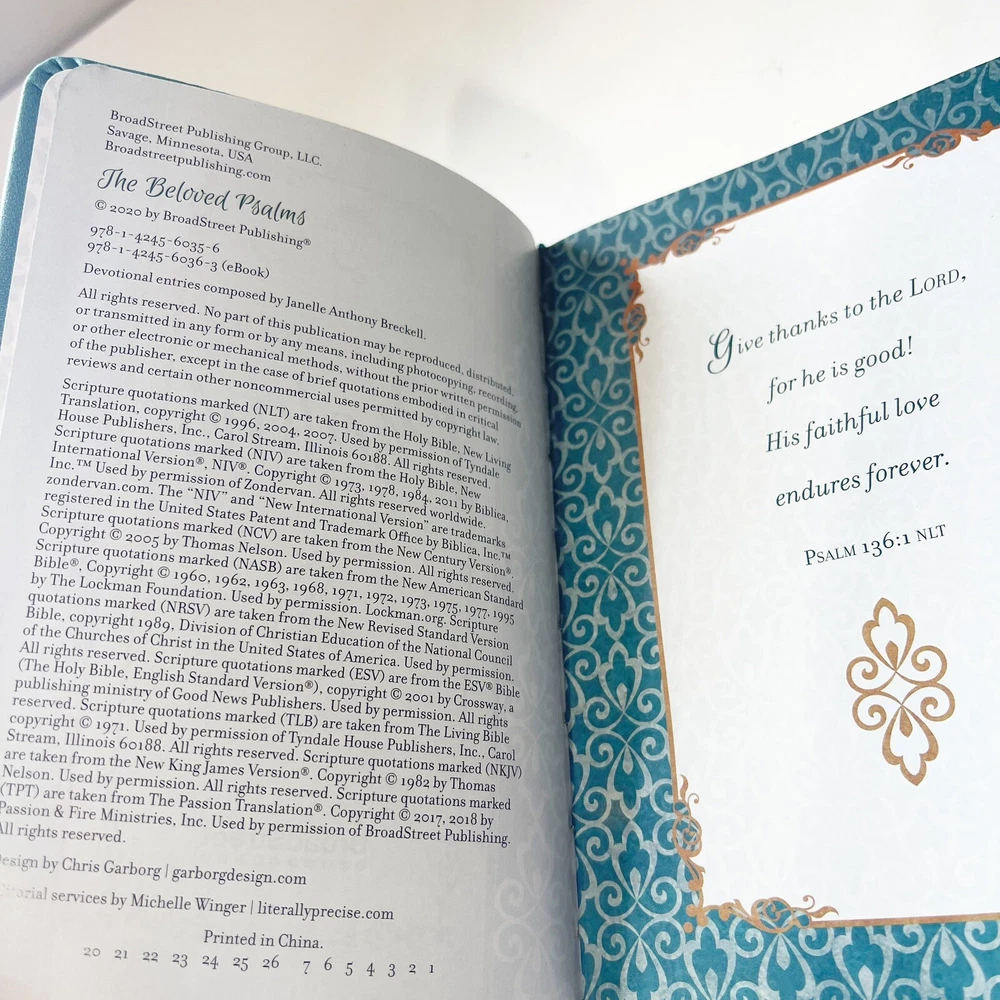 BroadStreet Publishing Group, LLC.
Savage, Minnesota, USA
Broadstreetpublishing.com
The Beloved Psalms
© 2020 by BroadStreet Publishing®
978-1-4245-6035-6
978-1-4245-6036-3 (eBook)
Devotional entries composed by Janelle Anthony Breckell.
All rights reserved. No part of this publication may be reproduced, distributed,
or transmitted in any form or by any means, including photocopying, recording,
or other electronic or mechanical methods, without the prior written permission
of the publisher, except in the case of brief quotations embodied in critical
reviews and certain other noncommercial uses permitted by copyright law.
Scripture quotations marked (NLT) are taken from the Holy Bible, New Living
Translation, copyright © 1996, 2004, 2007. Used by permission of Tyndale
House Publishers, Inc., Carol Stream, Illinois 60188. All rights reserved.
Scripture quotations marked (NIV) are taken from the Holy Bible, New
International Version®, NIV®. Copyright © 1973, 1978, 1984, 2011 by Biblica,
Inc.™ Used by permission of Zondervan. All rights reserved worldwide.
zondervan.com. The “NIV” and “New International Version” are trademarks
registered in the United States Patent and Trademark Office by Biblica, Inc.™
Scripture quotations marked (NCV) are taken from the New Century Version®.
Copyright © 2005 by Thomas Nelson. Used by permission. All rights reserved.
Scripture quotations marked (NASB) are taken from the New American Standard
Bible®, Copyright © 1960, 1962, 1963, 1968, 1971, 1972, 1973, 1975, 1977, 1995
by The Lockman Foundation. Used by permission. Lockman.org. Scripture
quotations marked (NRSV) are taken from the New Revised Standard Version
Bible, copyright 1989, Division of Christian Education of the National Council
of the Churches of Christ in the United States of America. Used by permission.
All rights reserved. Scripture quotations marked (ESV) are from the ESV® Bible
(The Holy Bible, English Standard Version®), copyright © 2001 by Crossway, a
publishing ministry of Good News Publishers. Used by permission. All rights
reserved. Scripture quotations marked (TLB) are taken from The Living Bible
copyright © 1971. Used by permission of Tyndale House Publishers, Inc., Carol
Stream, Illinois 60188. All rights reserved. Scripture quotations marked (NKJV)
are taken from the New King James Version®. Copyright © 1982 by Thomas
Nelson. Used by permission. All rights reserved. Scripture quotations marked
(TPT) are taken from The Passion Translation®. Copyright © 2017, 2018 by
Passion & Fire Ministries, Inc. Used by permission of BroadStreet Publishing.
All rights reserved.
Design by Chris Garborg | garborgdesign.com
Editorial services by Michelle Winger | literallyprecise.com
Printed in China.
20 21 22 23 24 25 26 7 6 5 4 3 2 1
Give thanks to the LORD,
for he is good!
His faithful love
endures forever.
PSALM 136:1 NLT